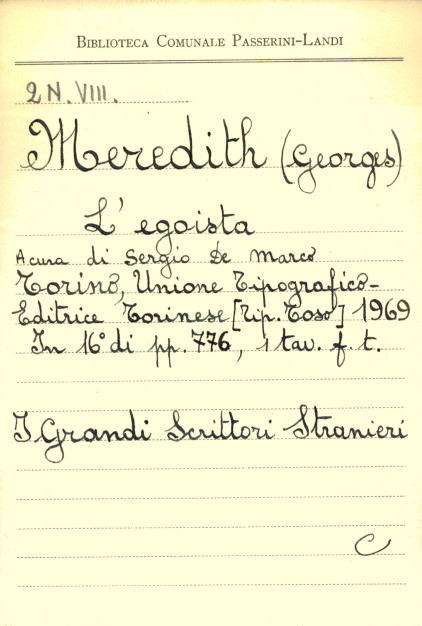 BIBLIOTECA COMUNALE PASSERINI-LANDI
2 N. VIII.
Meredith (Georges)
L'egoista
A cura di Sergio De Marco
Torino, Unione Tipografico-
Editrice Torinese [Tip. Toso] 1969
In 16° di pp. 776, 1 tav. f. t.
I Grandi Scrittori Stranieri
C